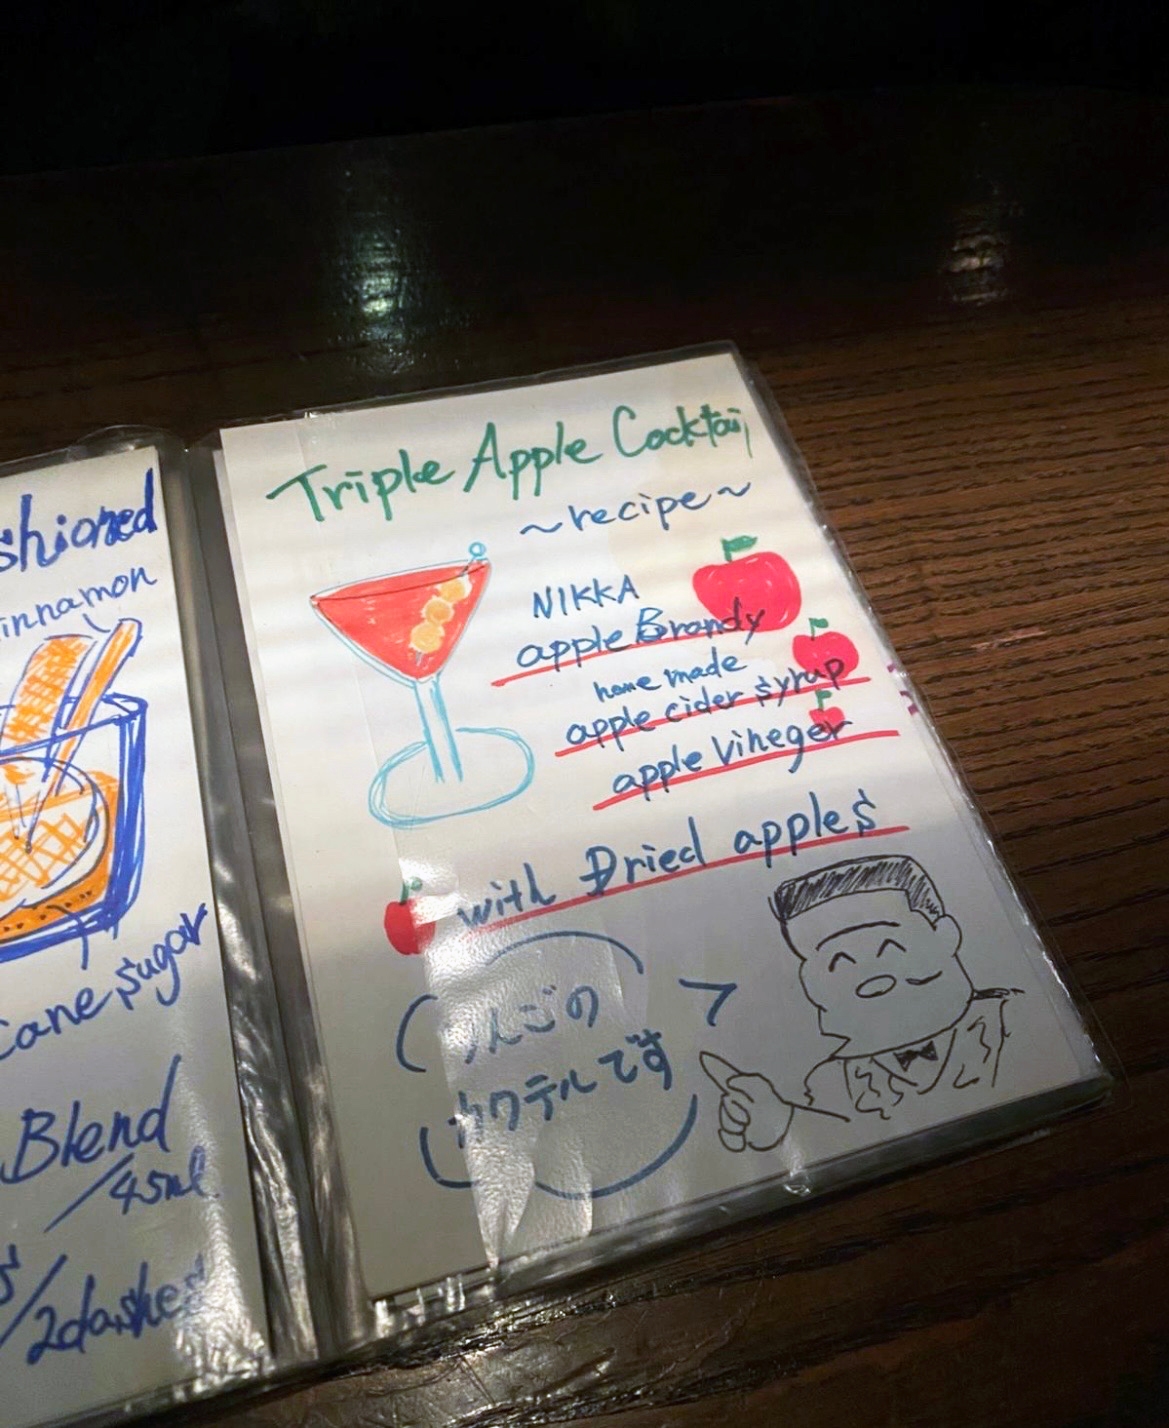 shioned
innamon
Cane sugar
Blend
/45ml
/2dashes
Triple Apple Cocktail
~recipe~
NIKKA
apple Brandy
home made
apple cider syrup
apple Vineger
with Dried apples
りんごの
カクテルです